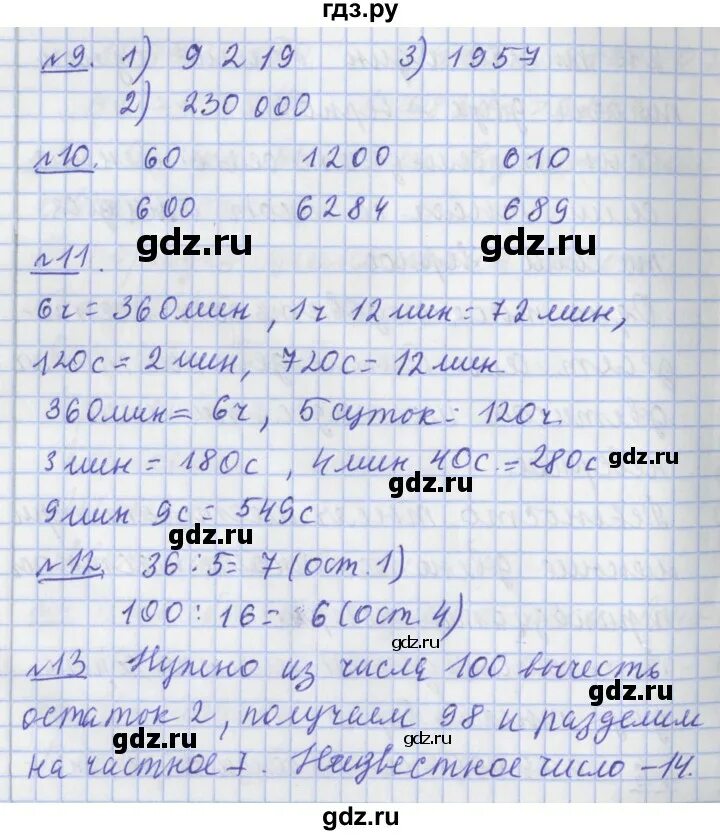 гдз.ру
№9. 1) 9 219 3) 1957
2) 230 000
№10. 60 1200 610
600 6284 689
gdz.ru gdz.ru gdz.ru
№11.
6ч = 360мин, 1ч 12мин = 72мин,
120с = 2мин, 720с = 12мин
360мин = 6ч, 5 суток = 120ч.
3мин = 180с, 4мин 40с. = 280с
gdz.ru
gdz.ru
9мин 9с = 549с
gdz.ru
№12. 36 : 5 = 7 (ост. 1)
100 : 16 = 6 (ост. 4)
gdz.ru
№13 Нужно из числа 100 вычесть
gdz.ru
остаток 2, получаем 98 и разделим
gdz.ru
на частное 7. Неизвестное число – 14.
gdz.ru
gdz.ru